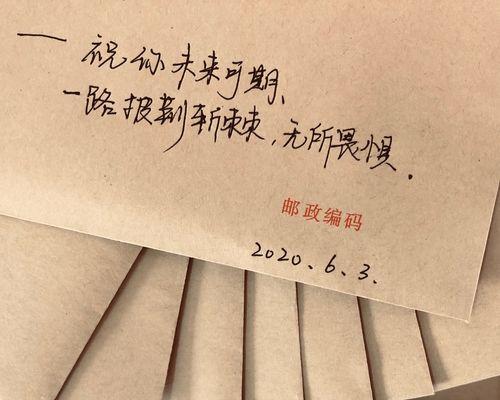 — 祝你未来可期、
一路披荆斩棘,无所畏惧.
邮政编码
2020.6.3.